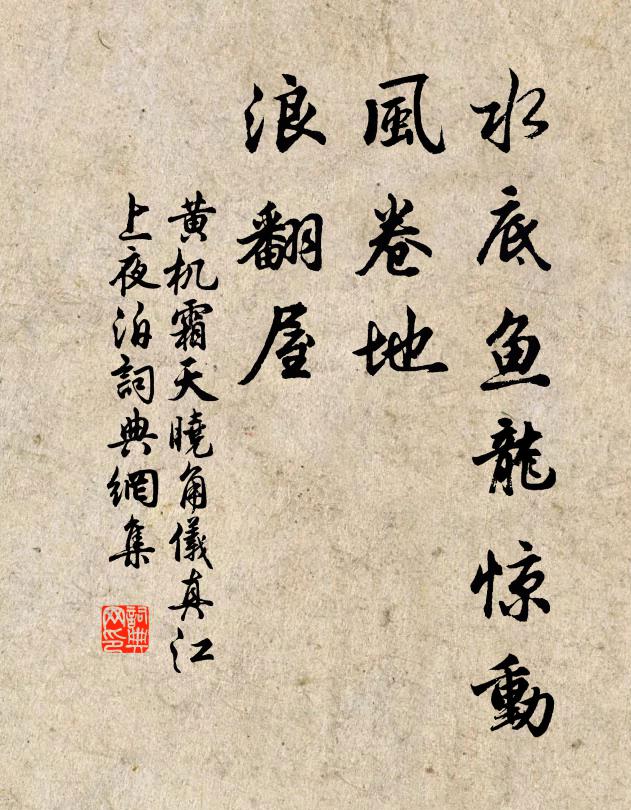 水底鱼龍惊動
風卷地
浪翻屋
黄机霜天曉角儀真江
上夜泊詞典網集
詞典
网印